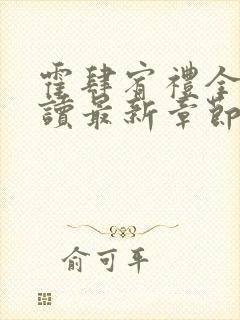 霍肆宥禮全
讀最新章節
俞可平